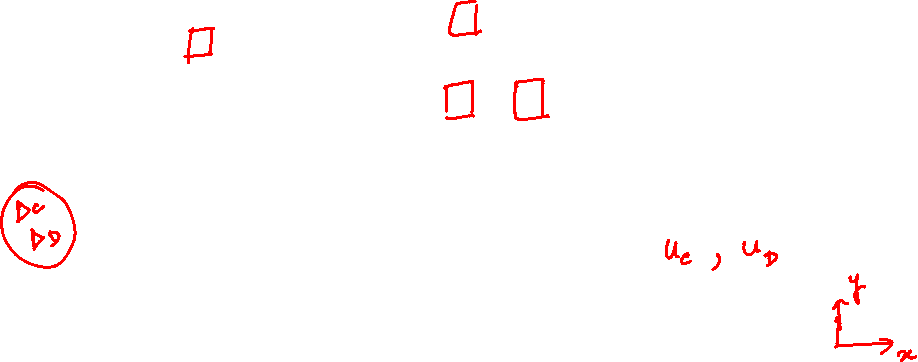 ▷C
▷D
u_c , u_D
y
x